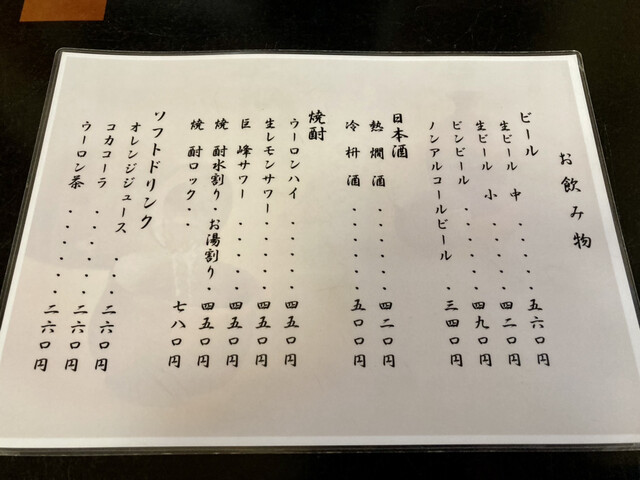 お飲み物
ビール
生ビール 中・・・・・五六〇円
生ビール 小・・・・・四二〇円
ビンビール・・・・・・四九〇円
ノンアルコールビール・三四〇円
日本酒
熱燗酒・・・・・・四二〇円
冷枡酒・・・・・・五〇〇円
焼酎
ウーロンハイ・・・・・四五〇円
生レモンサワー・・・・四五〇円
巨峰サワー・・・・・四五〇円
焼酎水割り・お湯割り・四五〇円
焼酎ロック・・七八〇円
ソフトドリンク
オレンジジュース・・二六〇円
コカコーラ・・・・・二六〇円
ウーロン茶・・・・・・二六〇円